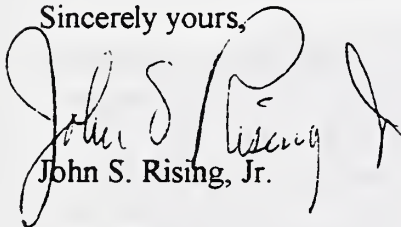 Sincerely yours,
John S Rising Jr
John S. Rising, Jr.